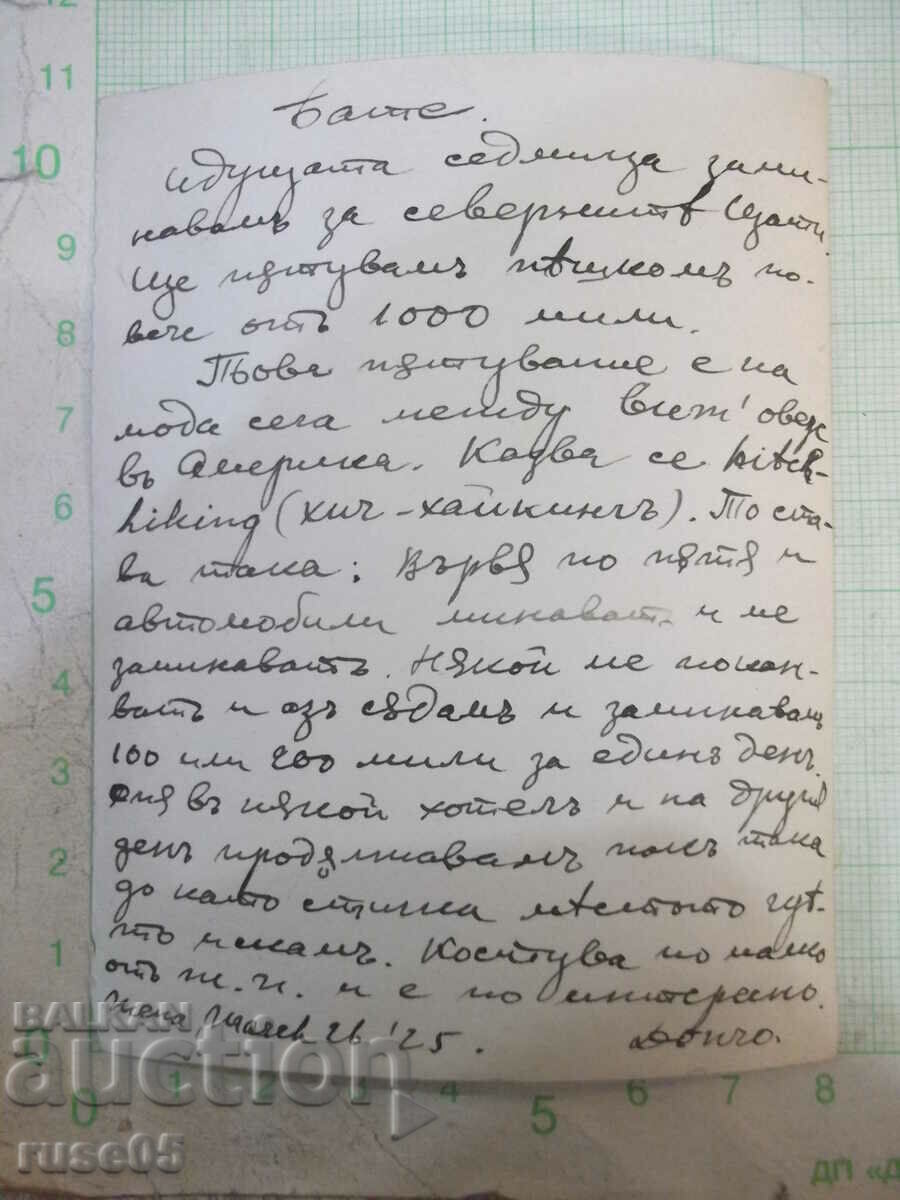 Бате.
Идущата седмица зами-
навамъ за севернитѣ Щати.
Ще пѫтувамъ пѣшкомъ по-
вече отъ 1000 мили.
пѫтувание е на
мода сега между
въ Америка. Казва се hitch-
hiking (хич-хайкингъ). То ста-
ва така: Вървя по пѫтя и
автомобили минаватъ и ме
заминаватъ. Някой ме покан-
ватъ и азъ сѣдамъ и заминавамъ
100 или 200 мили за единъ денъ.
Спя въ някой хотелъ и на другия
денъ продължавамъ пакъ така
до като стигна мѣстото гдѣ-
то искамъ. Костува по малко
отъ ж.п. и е по интересно.
March 26 '25. Дончо.
12
11
10
9
8
7
6
5
4
3
2
1
0
0
1
2
3
4
5
6
7
8
ДП «Д
BALKAN
auction
ruse05